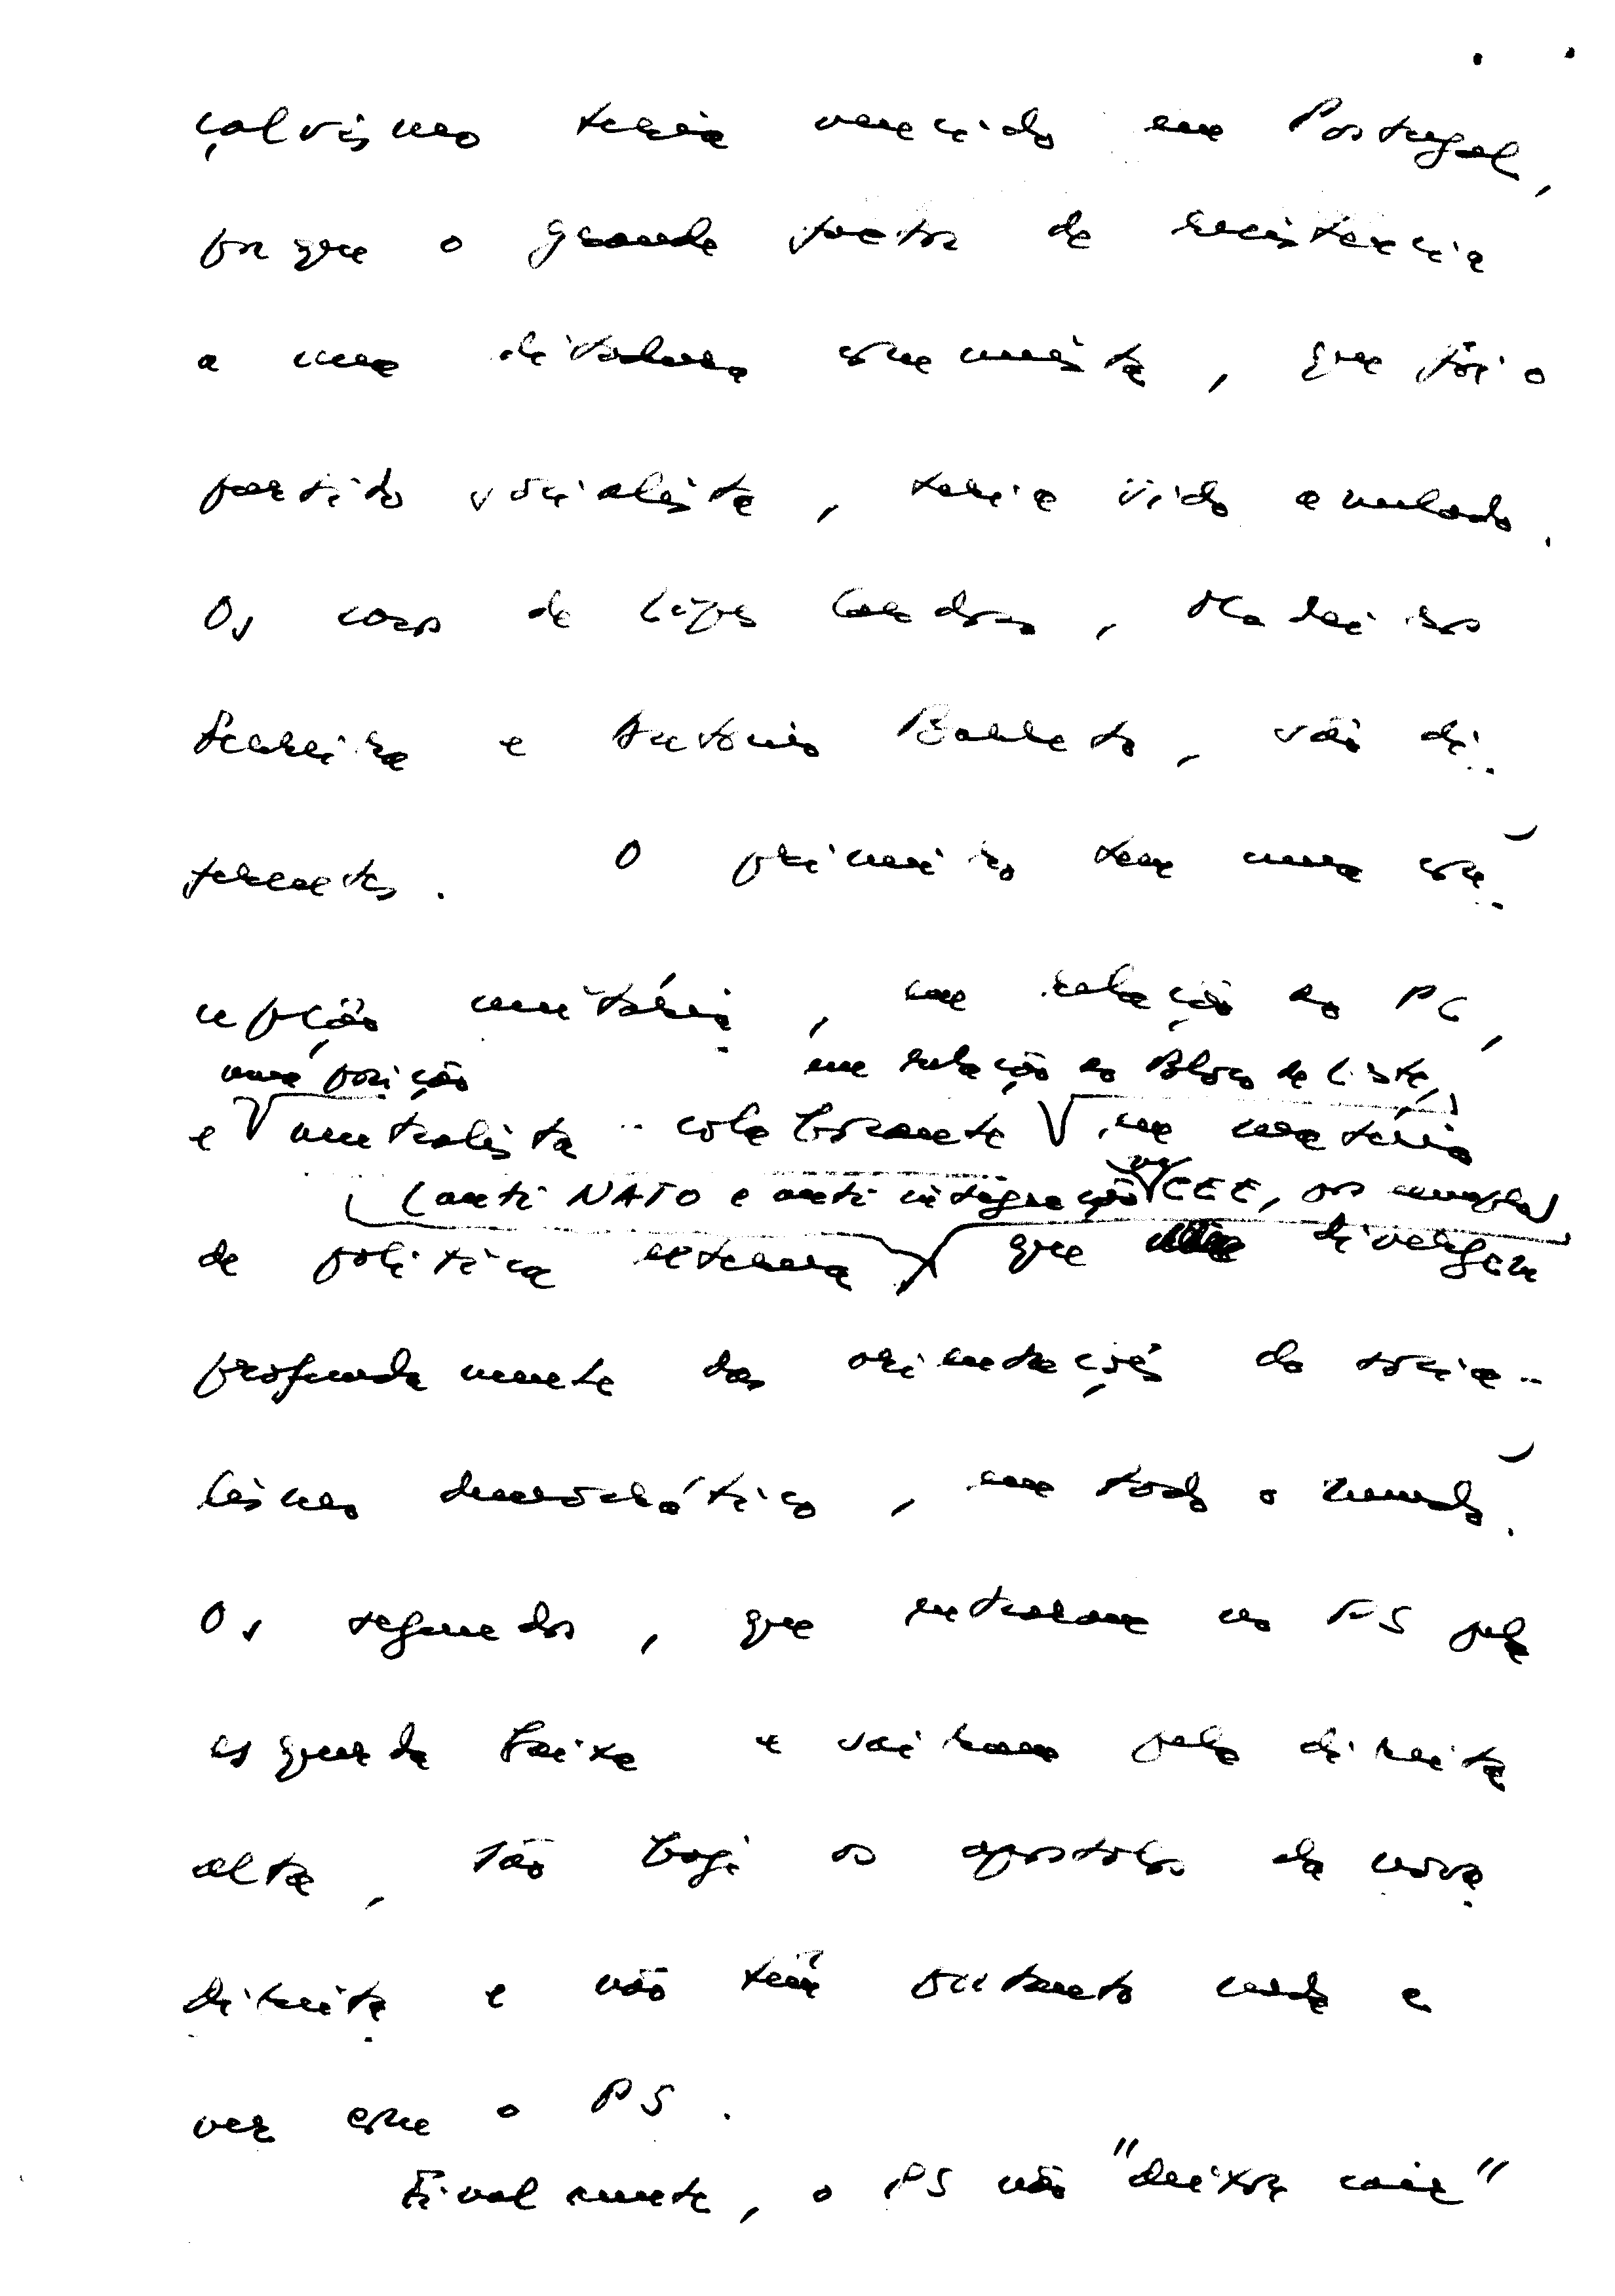 çalvismo teria vencido em Portugal,
porque o grande factor de resistência
a uma ditadura comunista, que foi o
partido socialista, teria sido anulado.
Os casos de Lopes Cardoso, Medeiros
Ferreira e António Barreto, são di-
ferentes. O primeiro tem uma con-
cepção unitária, em relação ao PC,
uma posição em relação ao Bloco de Leste,
e neutralista - colaborante em matéria
(anti NATO e anti integração na CEE, por exemplo)
de política externa que divergem
profundamente das orientações do socia-
lismo democrático, em todo o mundo.
Os segundos, que entraram no PS pela
esquerda baixa e saíram pela direita
alta, são hoje os apostolos da nova
Direita e não têm portanto nada a
ver com o PS.
Finalmente, o PS não "deixou cair"